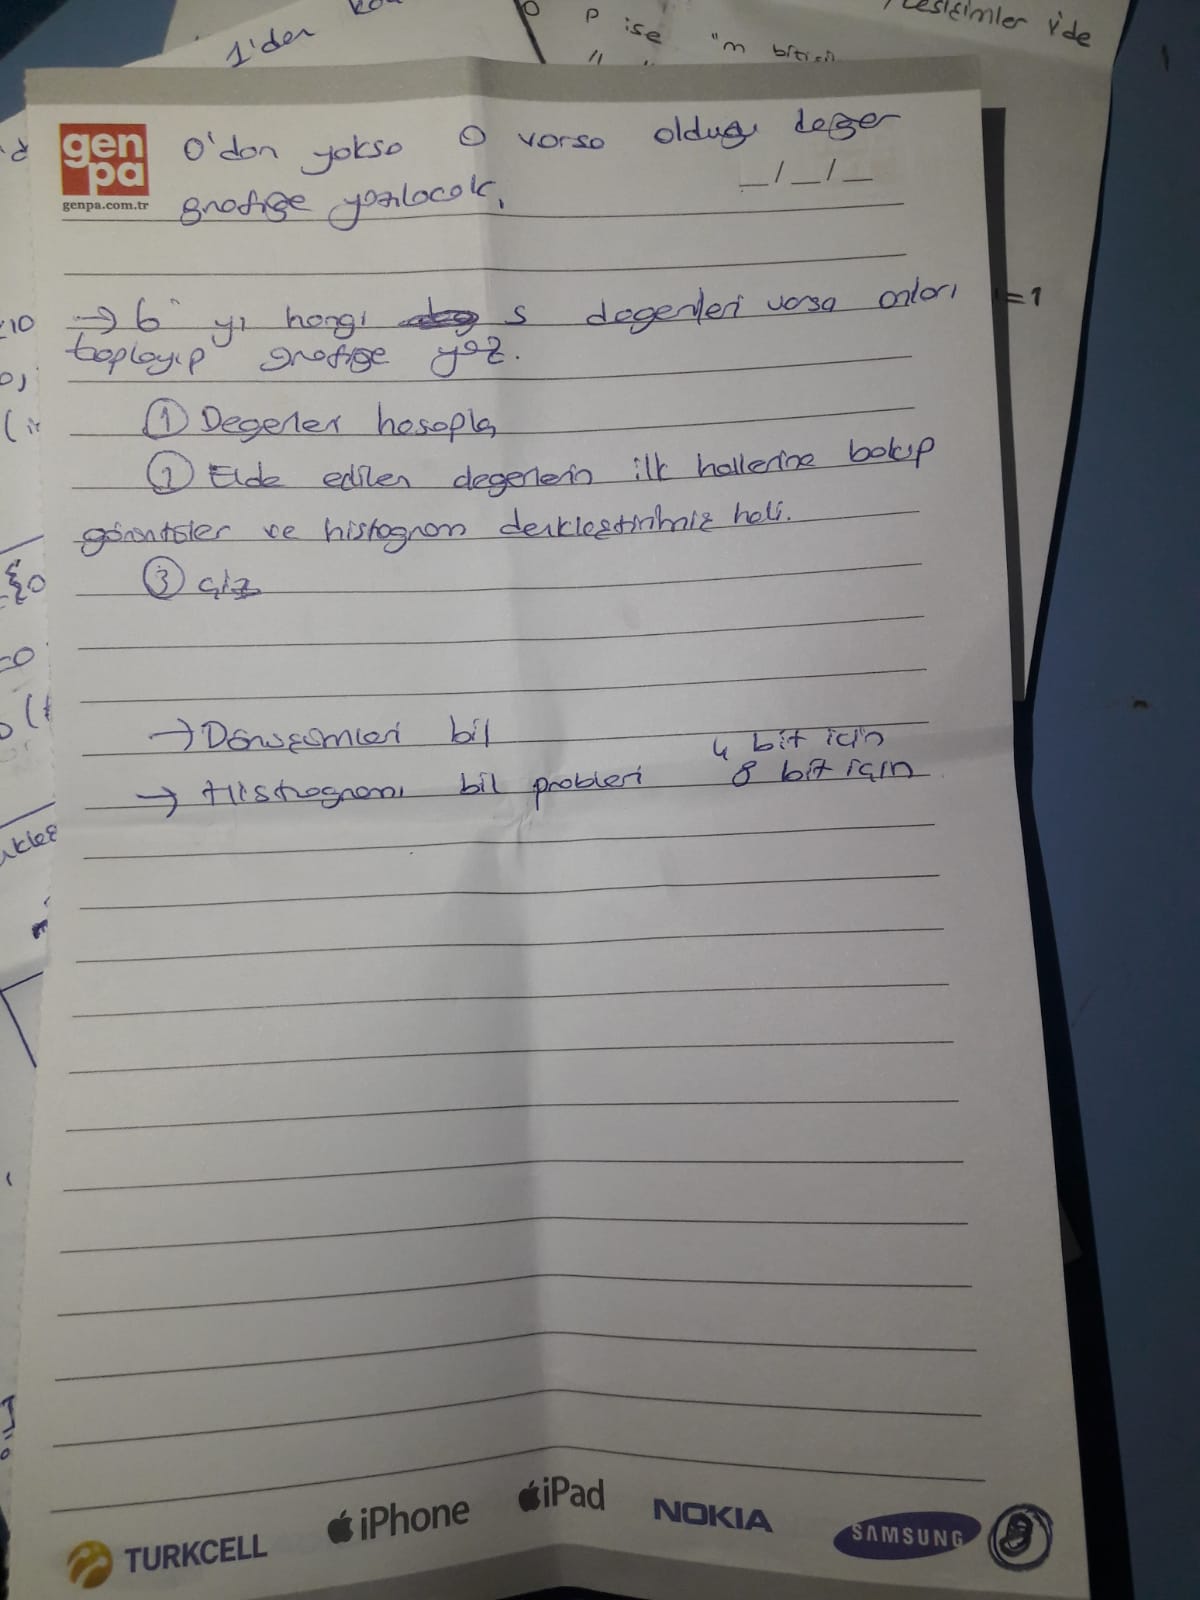 1'den
P ise "m bitişi
kesişimler v'de
gen
pa
genpa.com.tr
0'dan yoksa 0 varsa olduğu değer
_/_/_
grafiğe yazılacak.
→ 6'yı hangi s degerleri varsa onları
toplayıp grafiğe yaz.
=1
① Degerler hesapla
② Elde edilen degerlerin ilk hallerine bakıp
görüntüler ve histogram denkleştirilmiş hali.
③ çiz
→ Dönüşümleri bil
4 bit için
→ Histogramı bil probleri 8 bit için
TURKCELL
iPhone
iPad
NOKIA
SAMSUNG